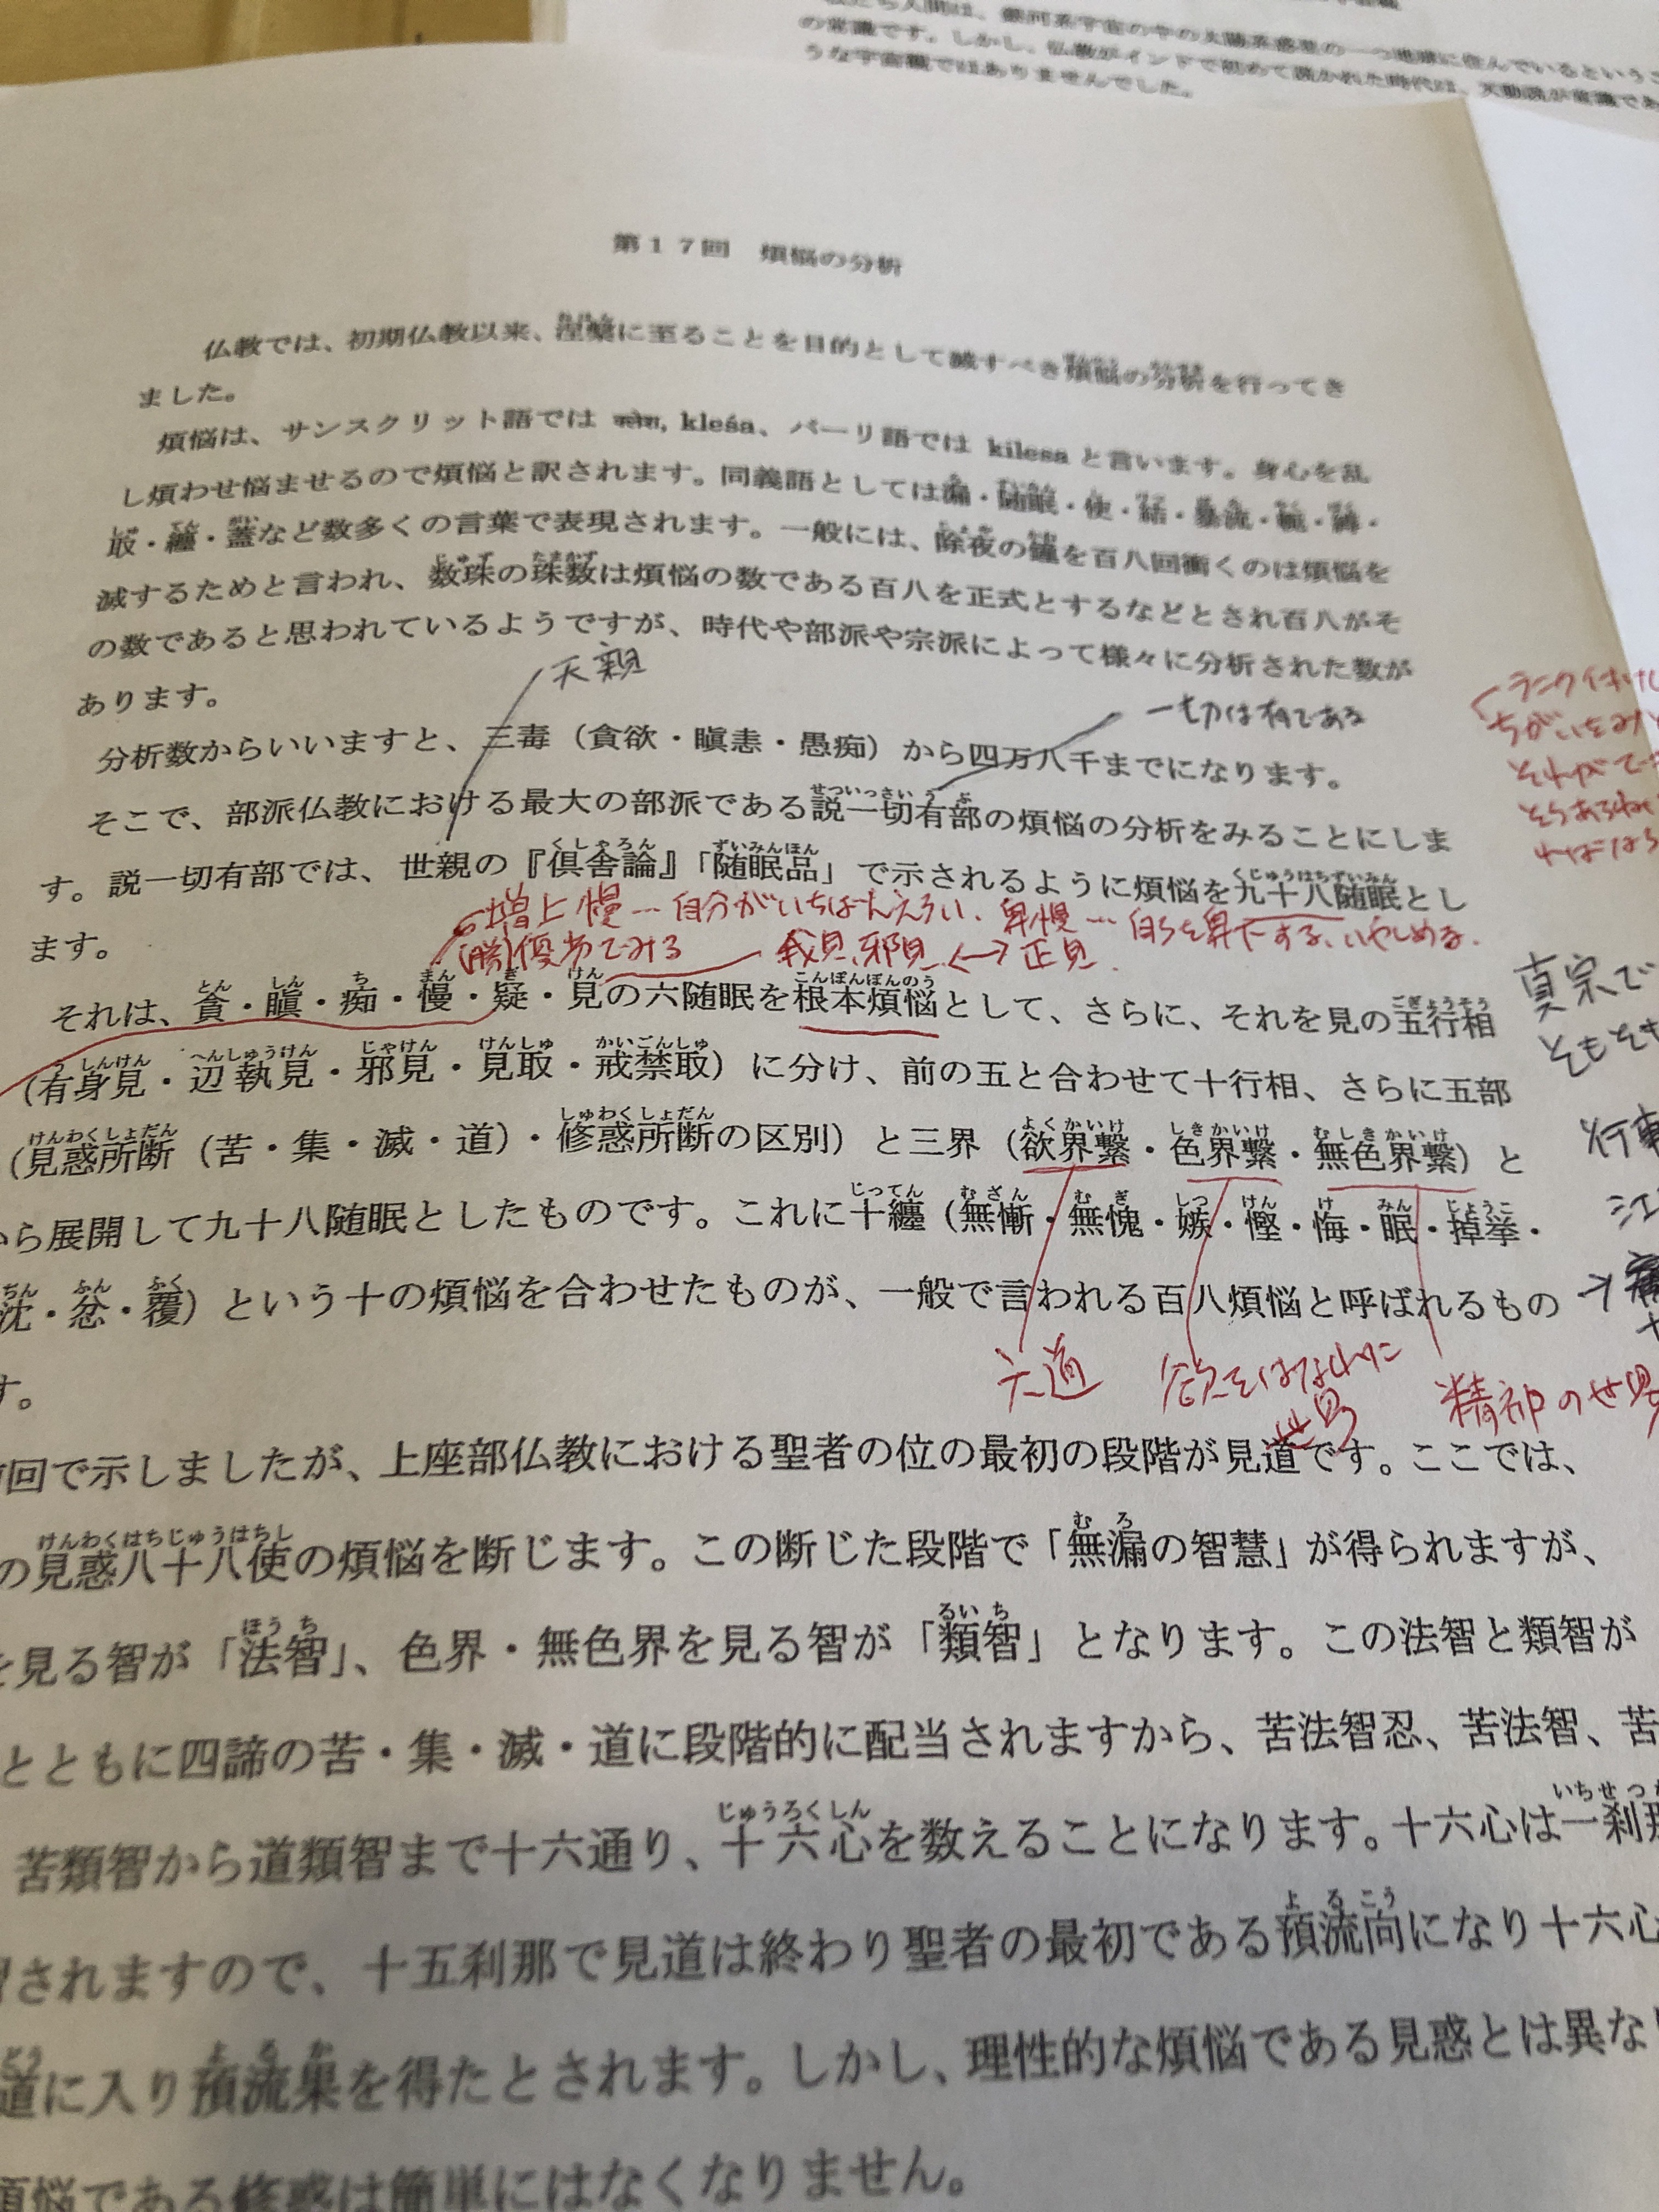 の常識です。しかし、仏教がインドで初めて説かれた時代は、天動説が常識であ
うな宇宙観ではありませんでした。
第17回　煩悩の分析
仏教では、初期仏教以来、涅槃に至ることを目的として滅すべき煩悩の分析を行ってき
ました。
煩悩は、サンスクリット語では kleśa、パーリ語では kilesa と言います。身心を乱
し煩わせ悩ませるので煩悩と訳されます。同義語としては漏・随眠・使・結・暴流・軛・縛・
取・纏・蓋など数多くの言葉で表現されます。一般には、除夜の鐘を百八回衝くのは煩悩を
滅するためと言われ、数珠の珠数は煩悩の数である百八を正式とするなどとされ百八がそ
の数であると思われているようですが、時代や部派や宗派によって様々に分析された数が
あります。
天親
一切は有である
分析数からいいますと、三毒（貪欲・瞋恚・愚痴）から四万八千までになります。
そこで、部派仏教における最大の部派である説一切有部の煩悩の分析をみることにしま
す。説一切有部では、世親の『倶舎論』「随眠品」で示されるように煩悩を九十八随眠とし
ます。
増上慢…自分がいちばんえらい、卑慢…自らを卑下する、いやしめる.
(勝)優劣でみる
我見、邪見 ←→ 正見
それは、貪・瞋・痴・慢・疑・見の六随眠を根本煩悩として、さらに、それを見の五行相
（有身見・辺執見・邪見・見取・戒禁取）に分け、前の五と合わせて十行相、さらに五部
（見惑所断（苦・集・滅・道）・修惑所断の区別）と三界（欲界繋・色界繋・無色界繋）と
から展開して九十八随眠としたものです。これに十纏（無慚・無愧・嫉・慳・悔・眠・掉挙・
沈・忿・覆）という十の煩悩を合わせたものが、一般で言われる百八煩悩と呼ばれるもの
す。
真宗で
六道
欲をはなれた
世界
精神の世界
回で示しましたが、上座部仏教における聖者の位の最初の段階が見道です。ここでは、
の見惑八十八使の煩悩を断じます。この断じた段階で「無漏の智慧」が得られますが、
を見る智が「法智」、色界・無色界を見る智が「類智」となります。この法智と類智が
とともに四諦の苦・集・滅・道に段階的に配当されますから、苦法智忍、苦法智、苦
苦類智から道類智まで十六通り、十六心を数えることになります。十六心は一刹那
されますので、十五刹那で見道は終わり聖者の最初である預流向になり十六心
道に入り預流果を得たとされます。しかし、理性的な煩悩である見惑とは異な
煩悩である修惑は簡単にはなくなりません。